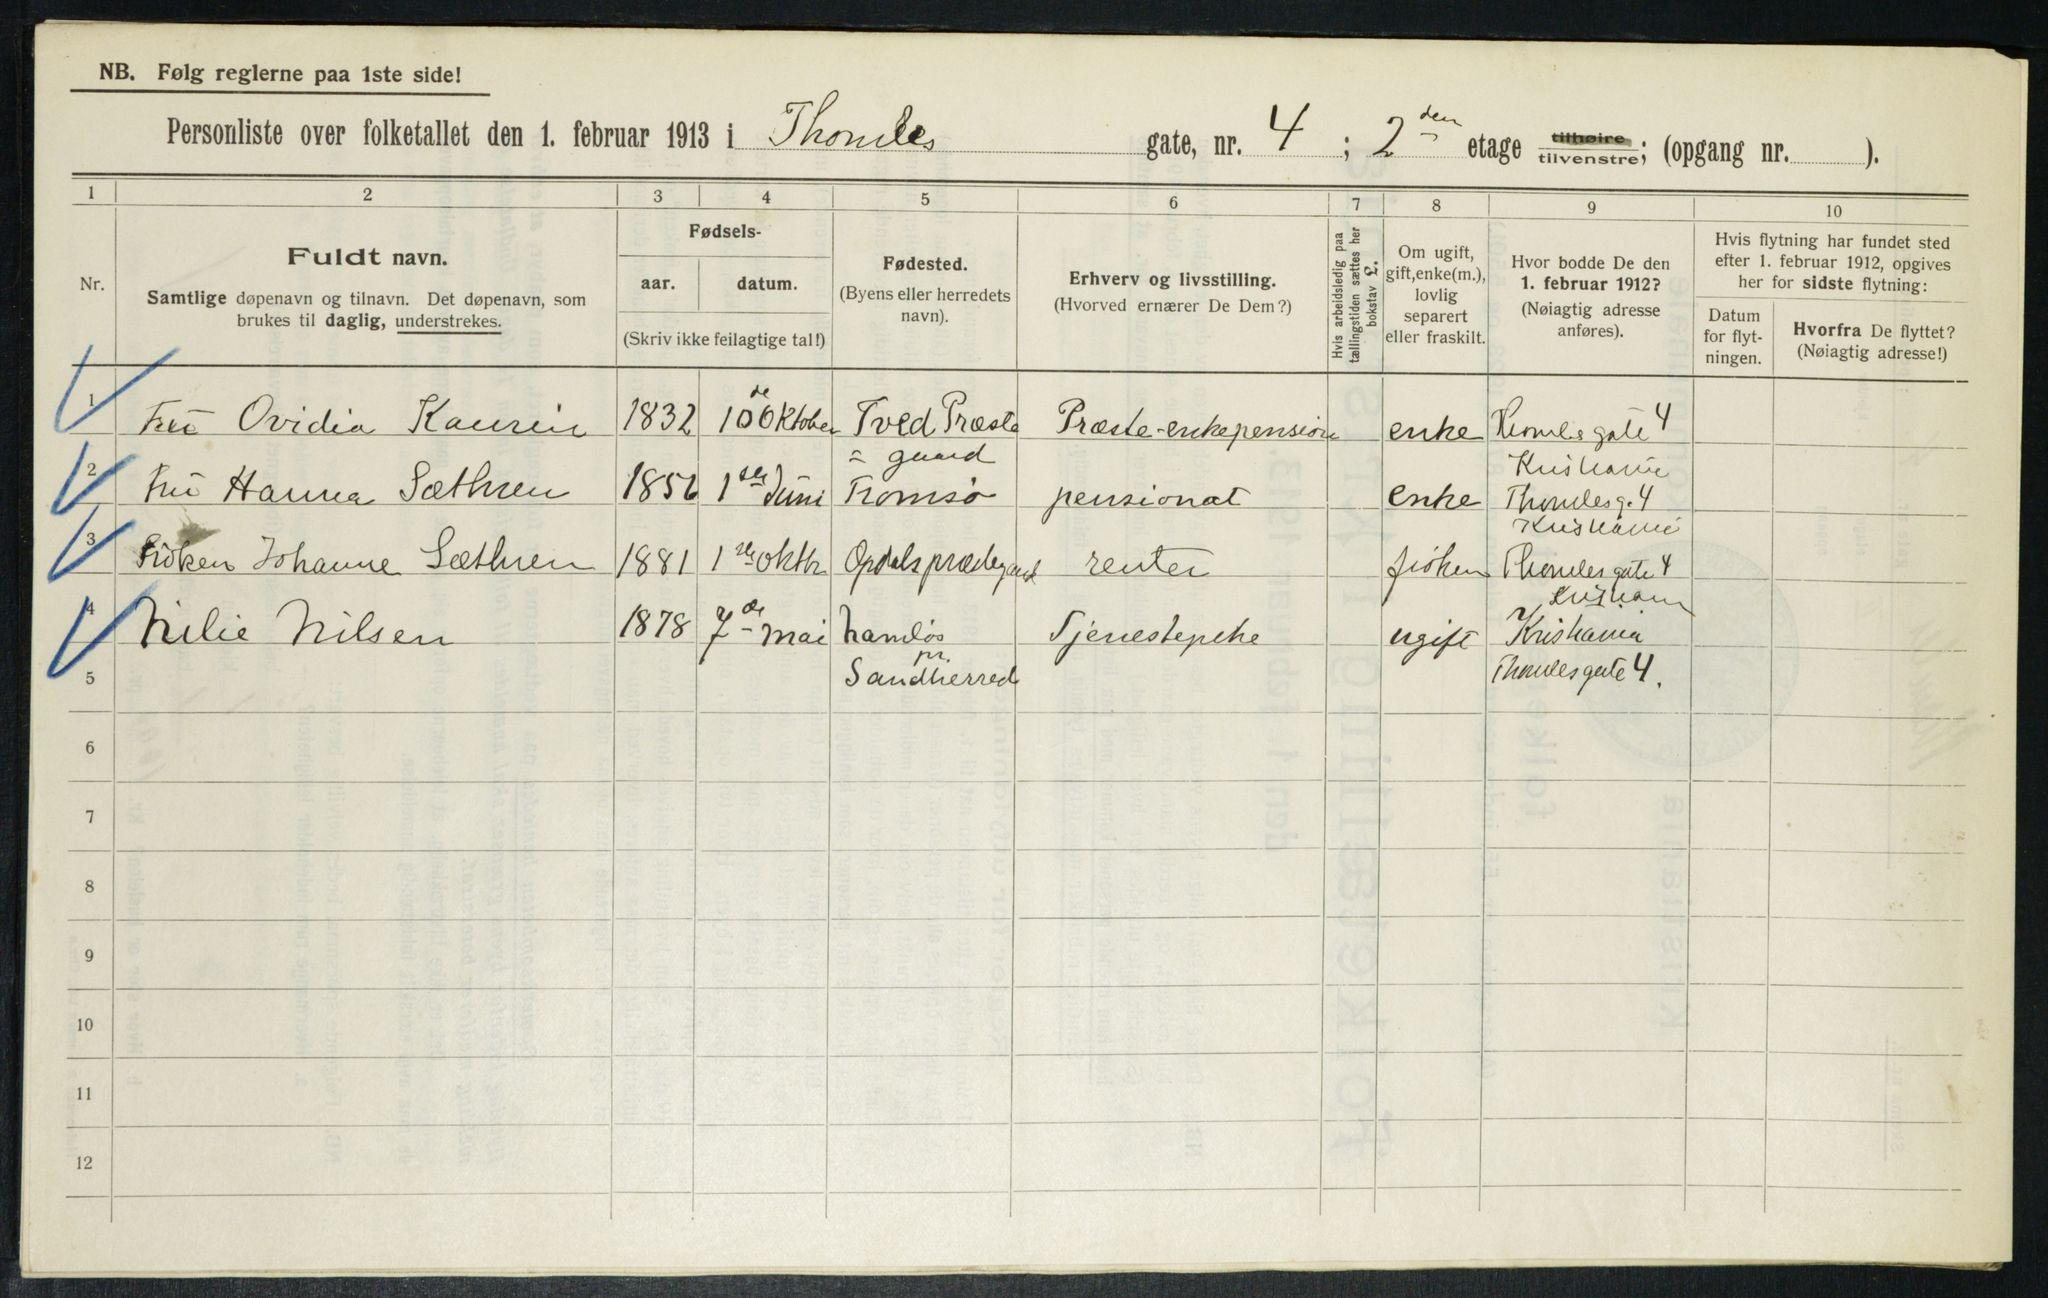 NB. Følg reglerne paa 1ste side!
Personliste over folketallet den 1. februar 1913 i Thomles gate, nr. 4 ; 2 den etage tilhøire tilvenstre; (opgang nr. ).
1 2 3 4 5 6 7 8 9 10
Nr.
Fuldt navn.
Samtlige døpenavn og tilnavn. Det døpenavn, som
brukes til daglig, understrekes.
Fødsels-
aar. datum.
(Skriv ikke feilagtige tal!)
Fødested.
(Byens eller herredets
navn).
Erhverv og livsstilling.
(Hvorved ernærer De Dem?)
Hvis arbeidsledig paa
tællingstiden sættes her
bokstav £.
Om ugift,
gift, enke(m.),
lovlig
separert
eller fraskilt.
Hvor bodde De den
1. februar 1912?
(Nøiagtig adresse
anføres).
Hvis flytning har fundet sted
efter 1. februar 1912, opgives
her for sidste flytning:
Datum
for flyt-
ningen.
Hvorfra De flyttet?
(Nøiagtig adresse!)
1 Fru Ovidia Kaurin 1832 10 de Oktober Tved Præste Præste-enkepension enke Thomlesgate 4
= gaard Kristiania
2 Fru Hanna Sæthren 1856 1ste Juni Tromsø pensionat enke Thomlesg. 4
Kristiania
3 Frøken Johanne Sæthren 1881 1ste Oktbr Opdals prestegaard renter frøken Thomlesgate 4
Kristiania
4 Nilie Nilsen 1878 7de mai Namløs Tjenestepike ugift Kristiania
pr.
5 Sandherred Thomlesgate 4.
6
7
8
9
10
11
12